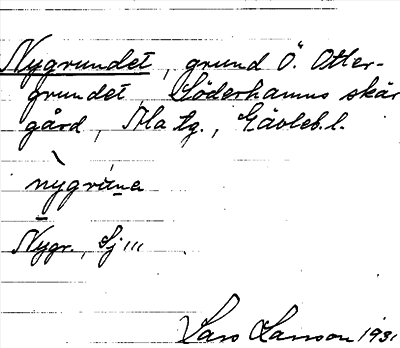 Nygrundet, grund Ö. Otter-
grundet, Söderhamns skär
gård, Ala tg., Gävleb. l.
nỳgrúna
Nygr., Sj III
Lars Larsson 1931